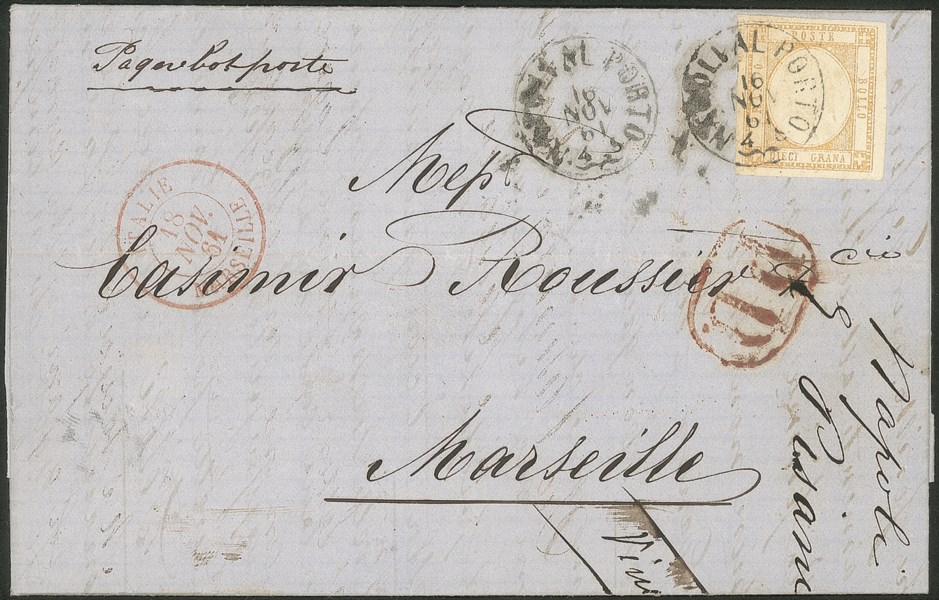 Paquebot poste
NAPOLI AL PORTO
16
NOV
61
4
NAPOLI AL PORTO
16
NOV
61
4
POSTE
BOLLO
DIECI GRANA
ITALIE
18
NOV.
61
MARSEILLE
P.D.
Mess
Casimir Roussier & Cie
Marseille
Napoli